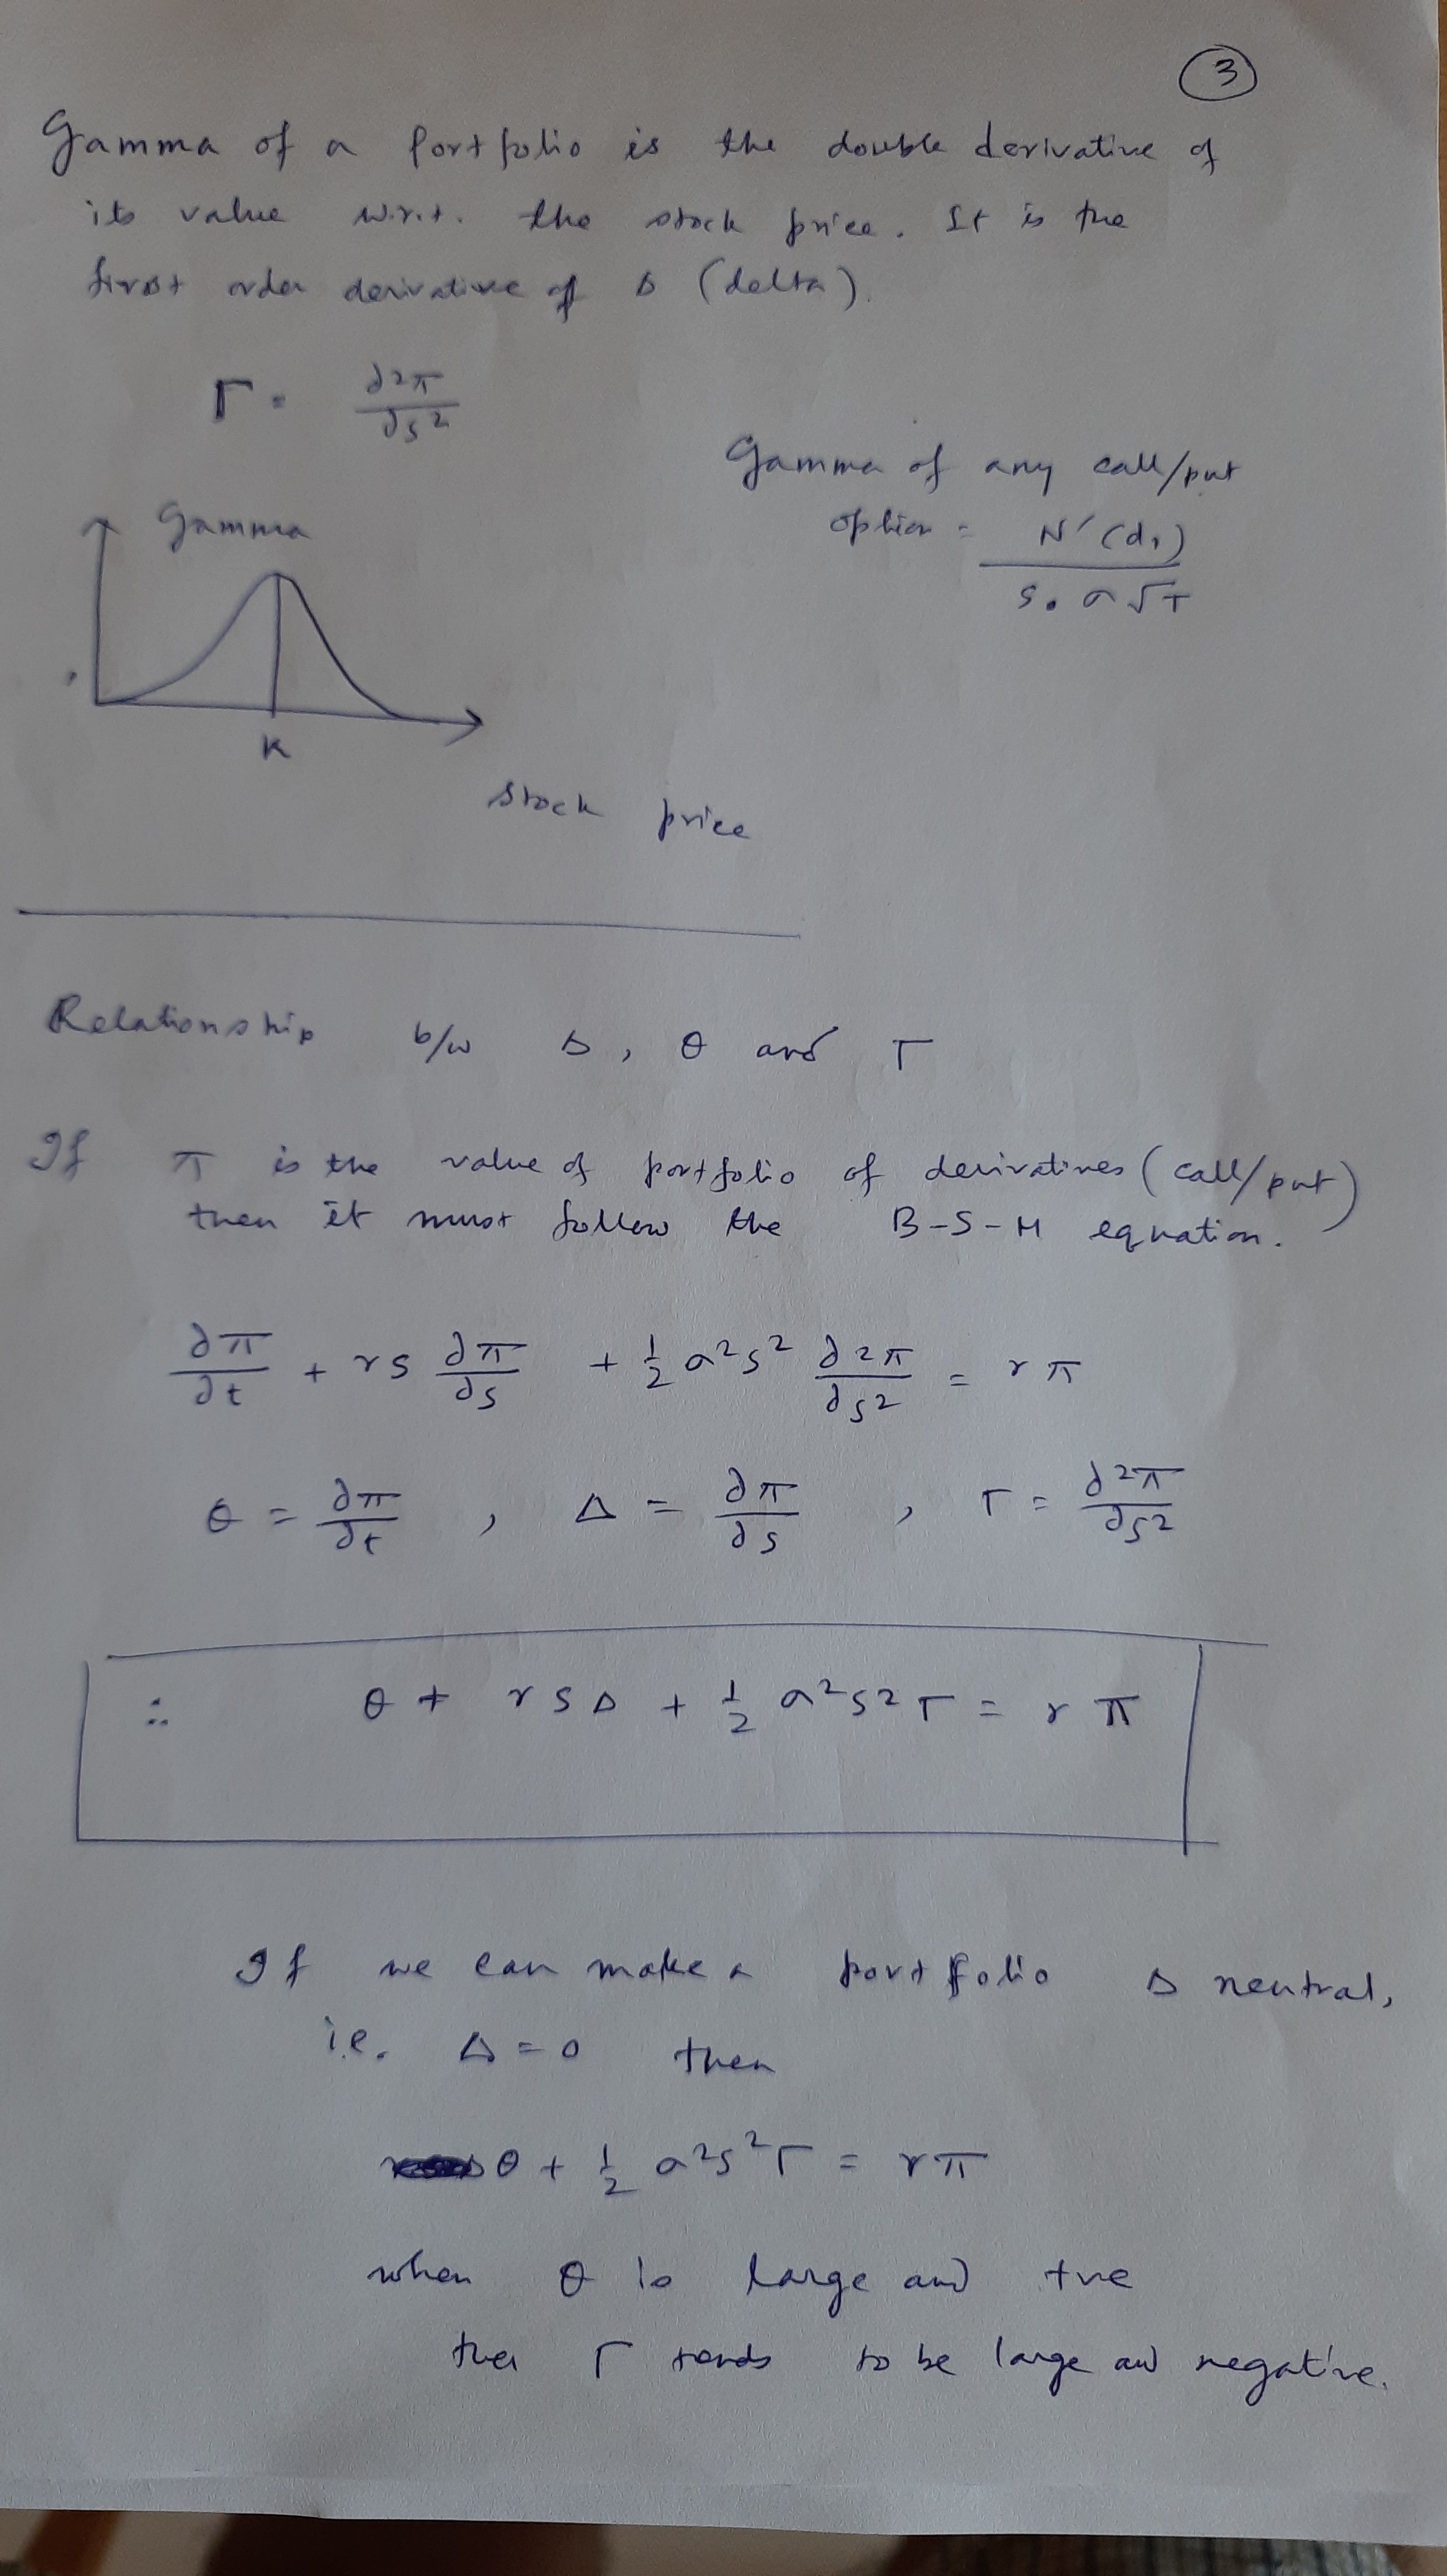 3
Gamma of a Portfolio is the double derivative of
its value w.r.t. the stock price. It is the
first order derivative of Δ (delta).
Γ = ∂²π/∂s²
Gamma of any call/put
option = N'(d₁)/S₀ σ√T
Gamma
K
stock price
Relationship b/w Δ, θ and Γ
If π is the value of portfolio of derivatives (call/put)
then it must follow the B-S-M equation.
∂π/∂t + rs ∂π/∂s + 1/2 σ²s² ∂²π/∂s² = rπ
θ = ∂π/∂t , Δ = ∂π/∂s , Γ = ∂²π/∂s²
∴ θ + rsΔ + 1/2 σ²s²Γ = rπ
If we can make a portfolio Δ neutral,
i.e. Δ = 0 then
θ + 1/2 σ²s²Γ = rπ
when θ is large and +ve
then Γ tends to be large and negative.